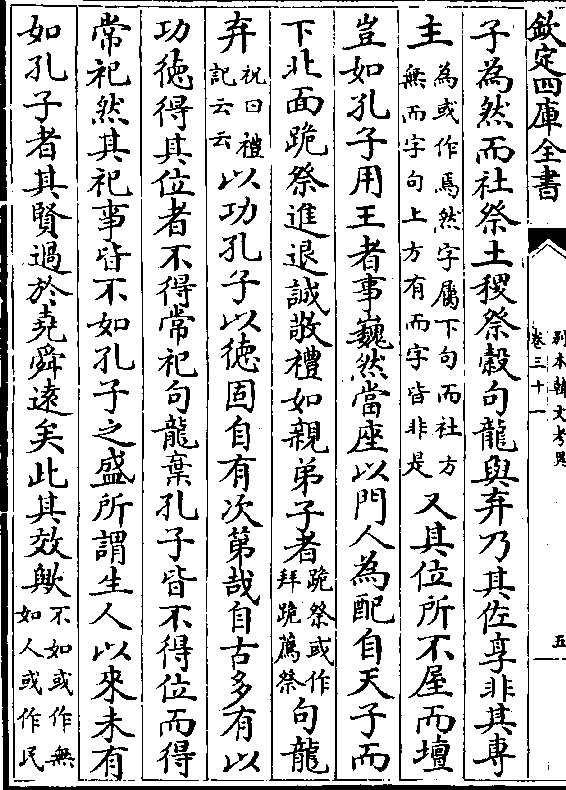 欽定四庫全書
别本韓文考異
卷三十一
五
子為然而社祭土稷祭榖句龍與弃乃其佐享非其專
主為或作焉然字屬下句而社方無而字句上方有而字皆非是又其位所不屋而壇
豈如孔子用王者事巍然當座以門人為配自天子而
下北面跪祭進退誠敬禮如親弟子者跪祭或作拜跪薦祭句龍
弃祝曰禮記云云以功孔子以徳固自有次第哉自古多有以
功徳得其位者不得常祀句龍棄孔子皆不得位而得
常祀然其祀事皆不如孔子之盛所謂生人以來未有
如孔子者其賢過於堯舜逺矣此其效歟不如或作無如人或作民